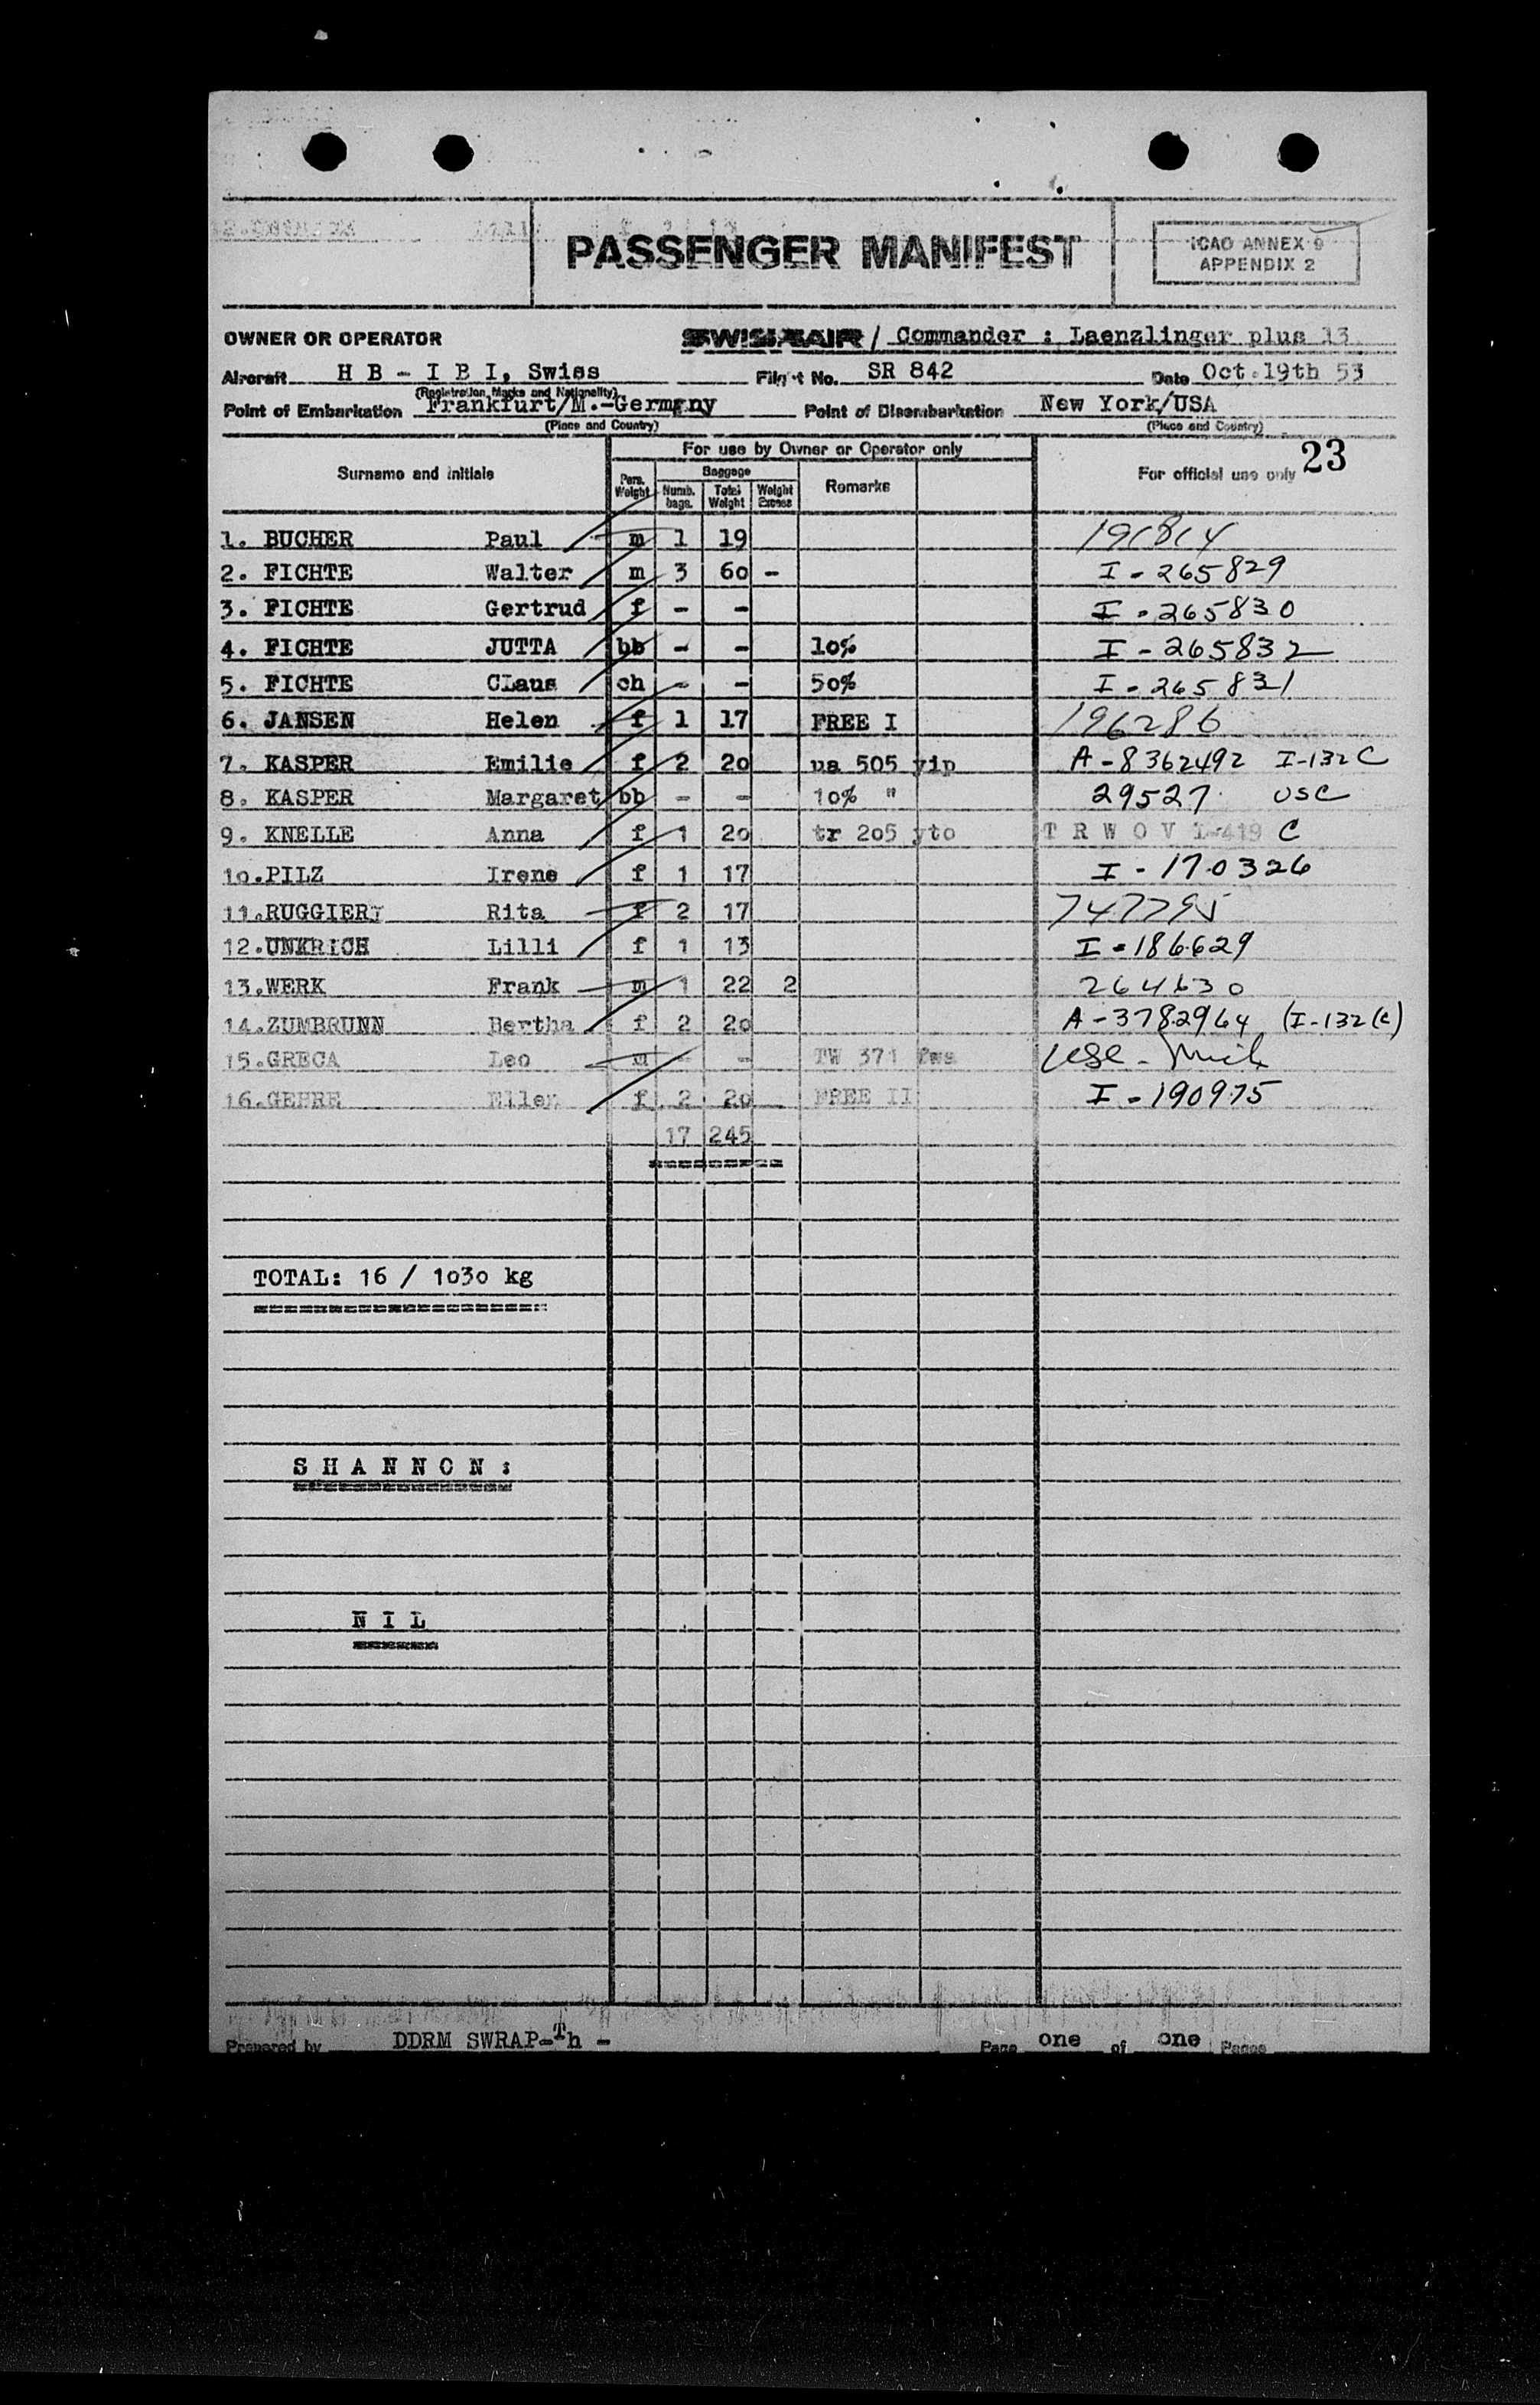 PASSENGER MANIFEST
ICAO ANNEX 9
APPENDIX 2
OWNER OR OPERATOR SWISSAIR / Commander : Laenzlinger plus 13
Aircraft H B - I B I, Swiss Flight No. SR 842 Date Oct.19th 53
(Registration Marks and Nationality)
Point of Embarkation Frankfurt/M.-Germany Point of Disembarkation New York/USA
(Place and Country) (Place and Country)
For use by Owner or Operator only
23
Surname and initials Pers. Weight Baggage Numb. bags. Total Weight Weight Excess Remarks For official use only
1. BUCHER Paul m 1 19
2. FICHTE Walter m 3 60 - I - 265829
3. FICHTE Gertrud f - - I - 265830
4. FICHTE JUTTA bb - - 10% I - 265832
5. FICHTE CLaus ch - - 50% I - 265831
6. JANSEN Helen f 1 17 FREE I 196286
7. KASPER Emilie f 2 20 ua 505 yip A - 8362492 I-132 C
8. KASPER Margaret bb - - 10% " 29527 USC
9. KNELLE Anna f 1 20 tr 205 yto T R W O V I-419 C
10.PILZ Irene f 1 17 I - 170326
11.RUGGIERI Rita f 2 17 747795
12.UNKRICH Lilli f 1 13 I - 186629
13.WERK Frank m 1 22 2 264630
14.ZUMBRUNN Bertha f 2 20 A - 3782964 (I-132(c)
15.GRECA Leo m - - TW 371
16.GEHRE Ellen f 2 20 FREE II I - 190975
17 245
TOTAL: 16 / 1030 kg
S H A N N O N :
N I L
Prepared by DDRM SWRAP-Th - Page one of one Pages